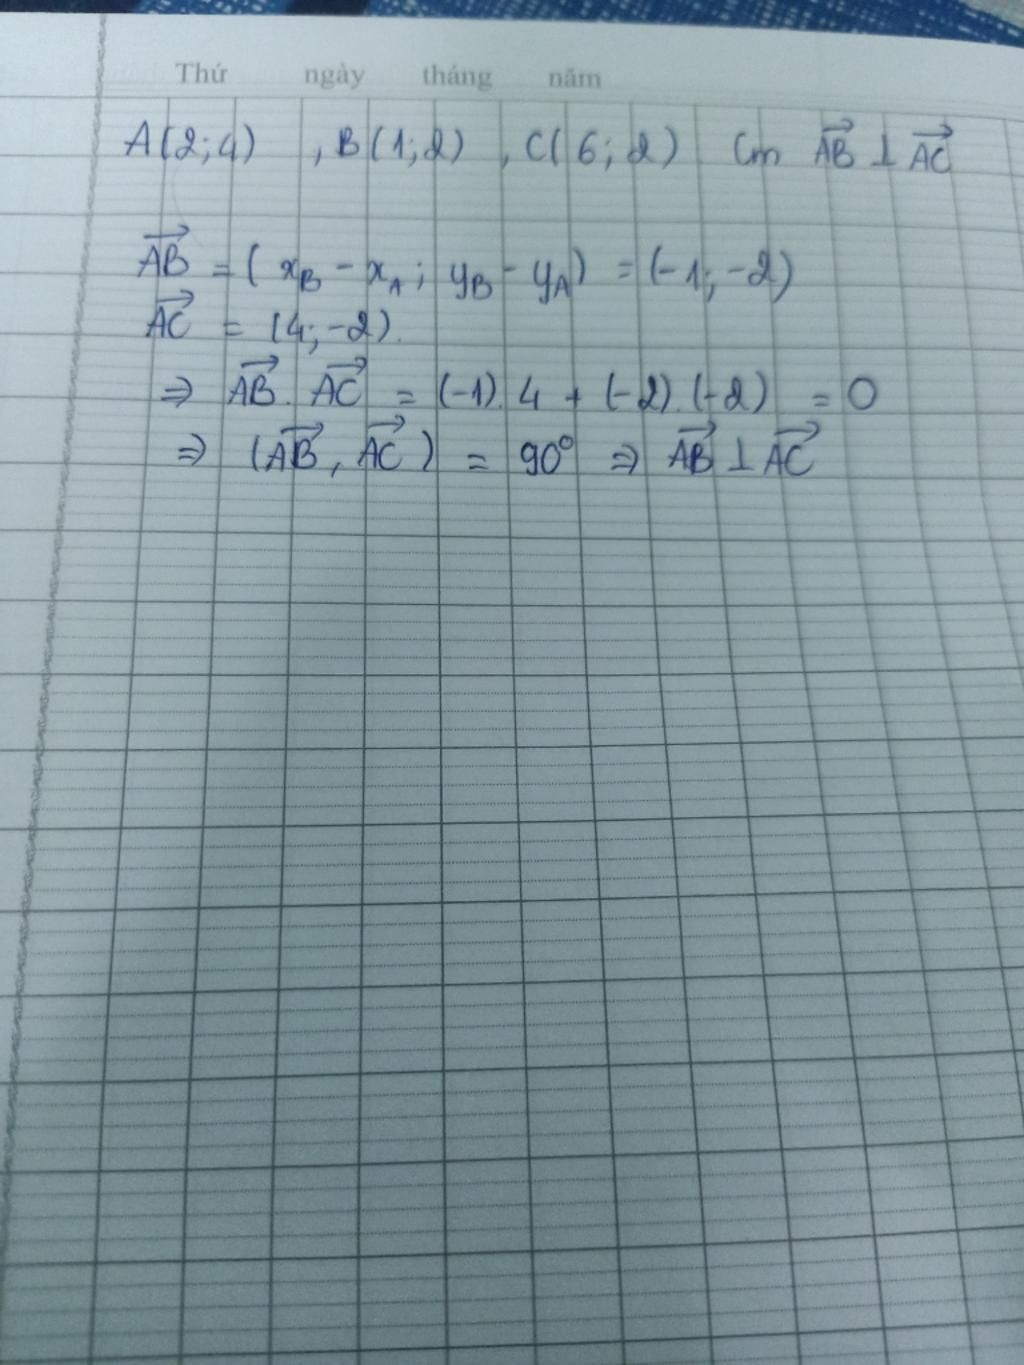 Thứ ngày tháng năm
A(2;4) , B(1;2) , C(6;2) Cm \overrightarrow{AB} ⊥ \overrightarrow{AC}
\overrightarrow{AB} = (x_B - x_A; y_B - y_A) = (-1; -2)
\overrightarrow{AC} = (4; -2).
⇒ \overrightarrow{AB}. \overrightarrow{AC} = (-1).4 + (-2).(-2) = 0
⇒ (\overrightarrow{AB}, \overrightarrow{AC}) = 90° ⇒ \overrightarrow{AB} ⊥ \overrightarrow{AC}